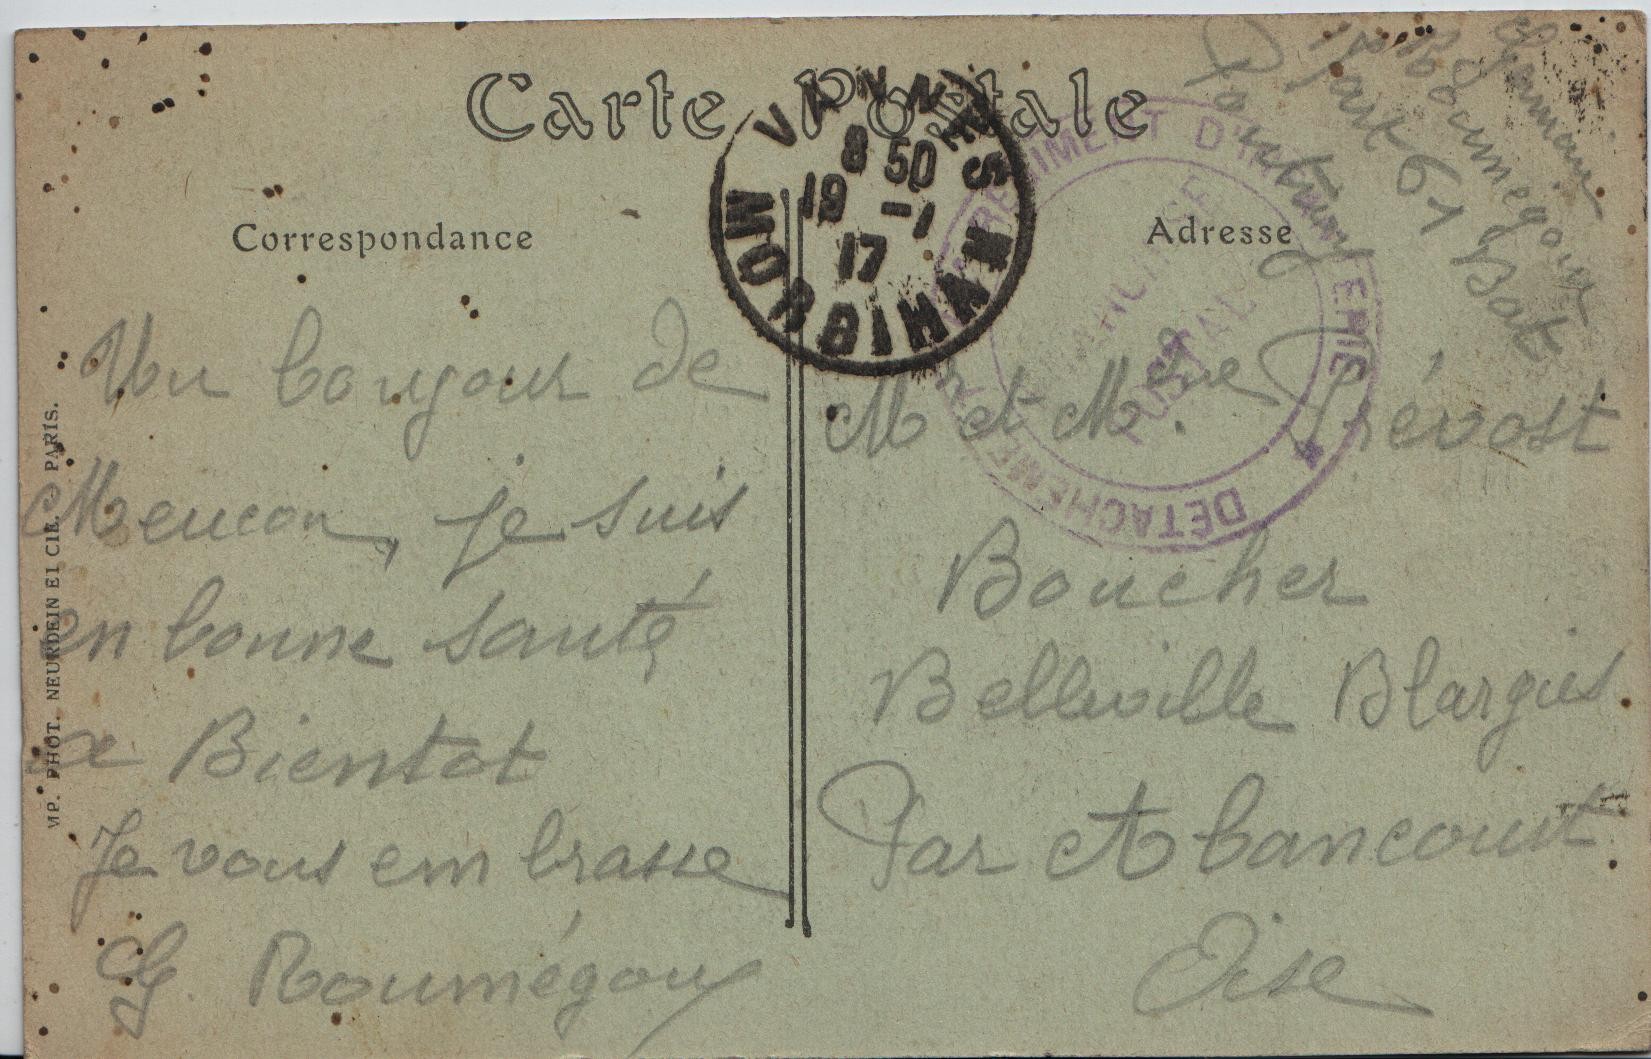 Carte Postale
Correspondance
Adresse
VANNES
8 50
19 -1
17
MORBIHAN
RÉGIMENT D'INFANTERIE
DÉTACHEMENT
FRANCHISE
POSTALE
Roumégoux
1 Part 61 Bat
Un bonjour de
Meucon, je suis
en bonne santé
a Bientot
Je vous em brasse
G. Roumégoux
M et Mme Prévost
Boucher
Belleville Blargies
Par Abancourt
Oise
PHOT. NEURDEIN ET CIE. - PARIS.